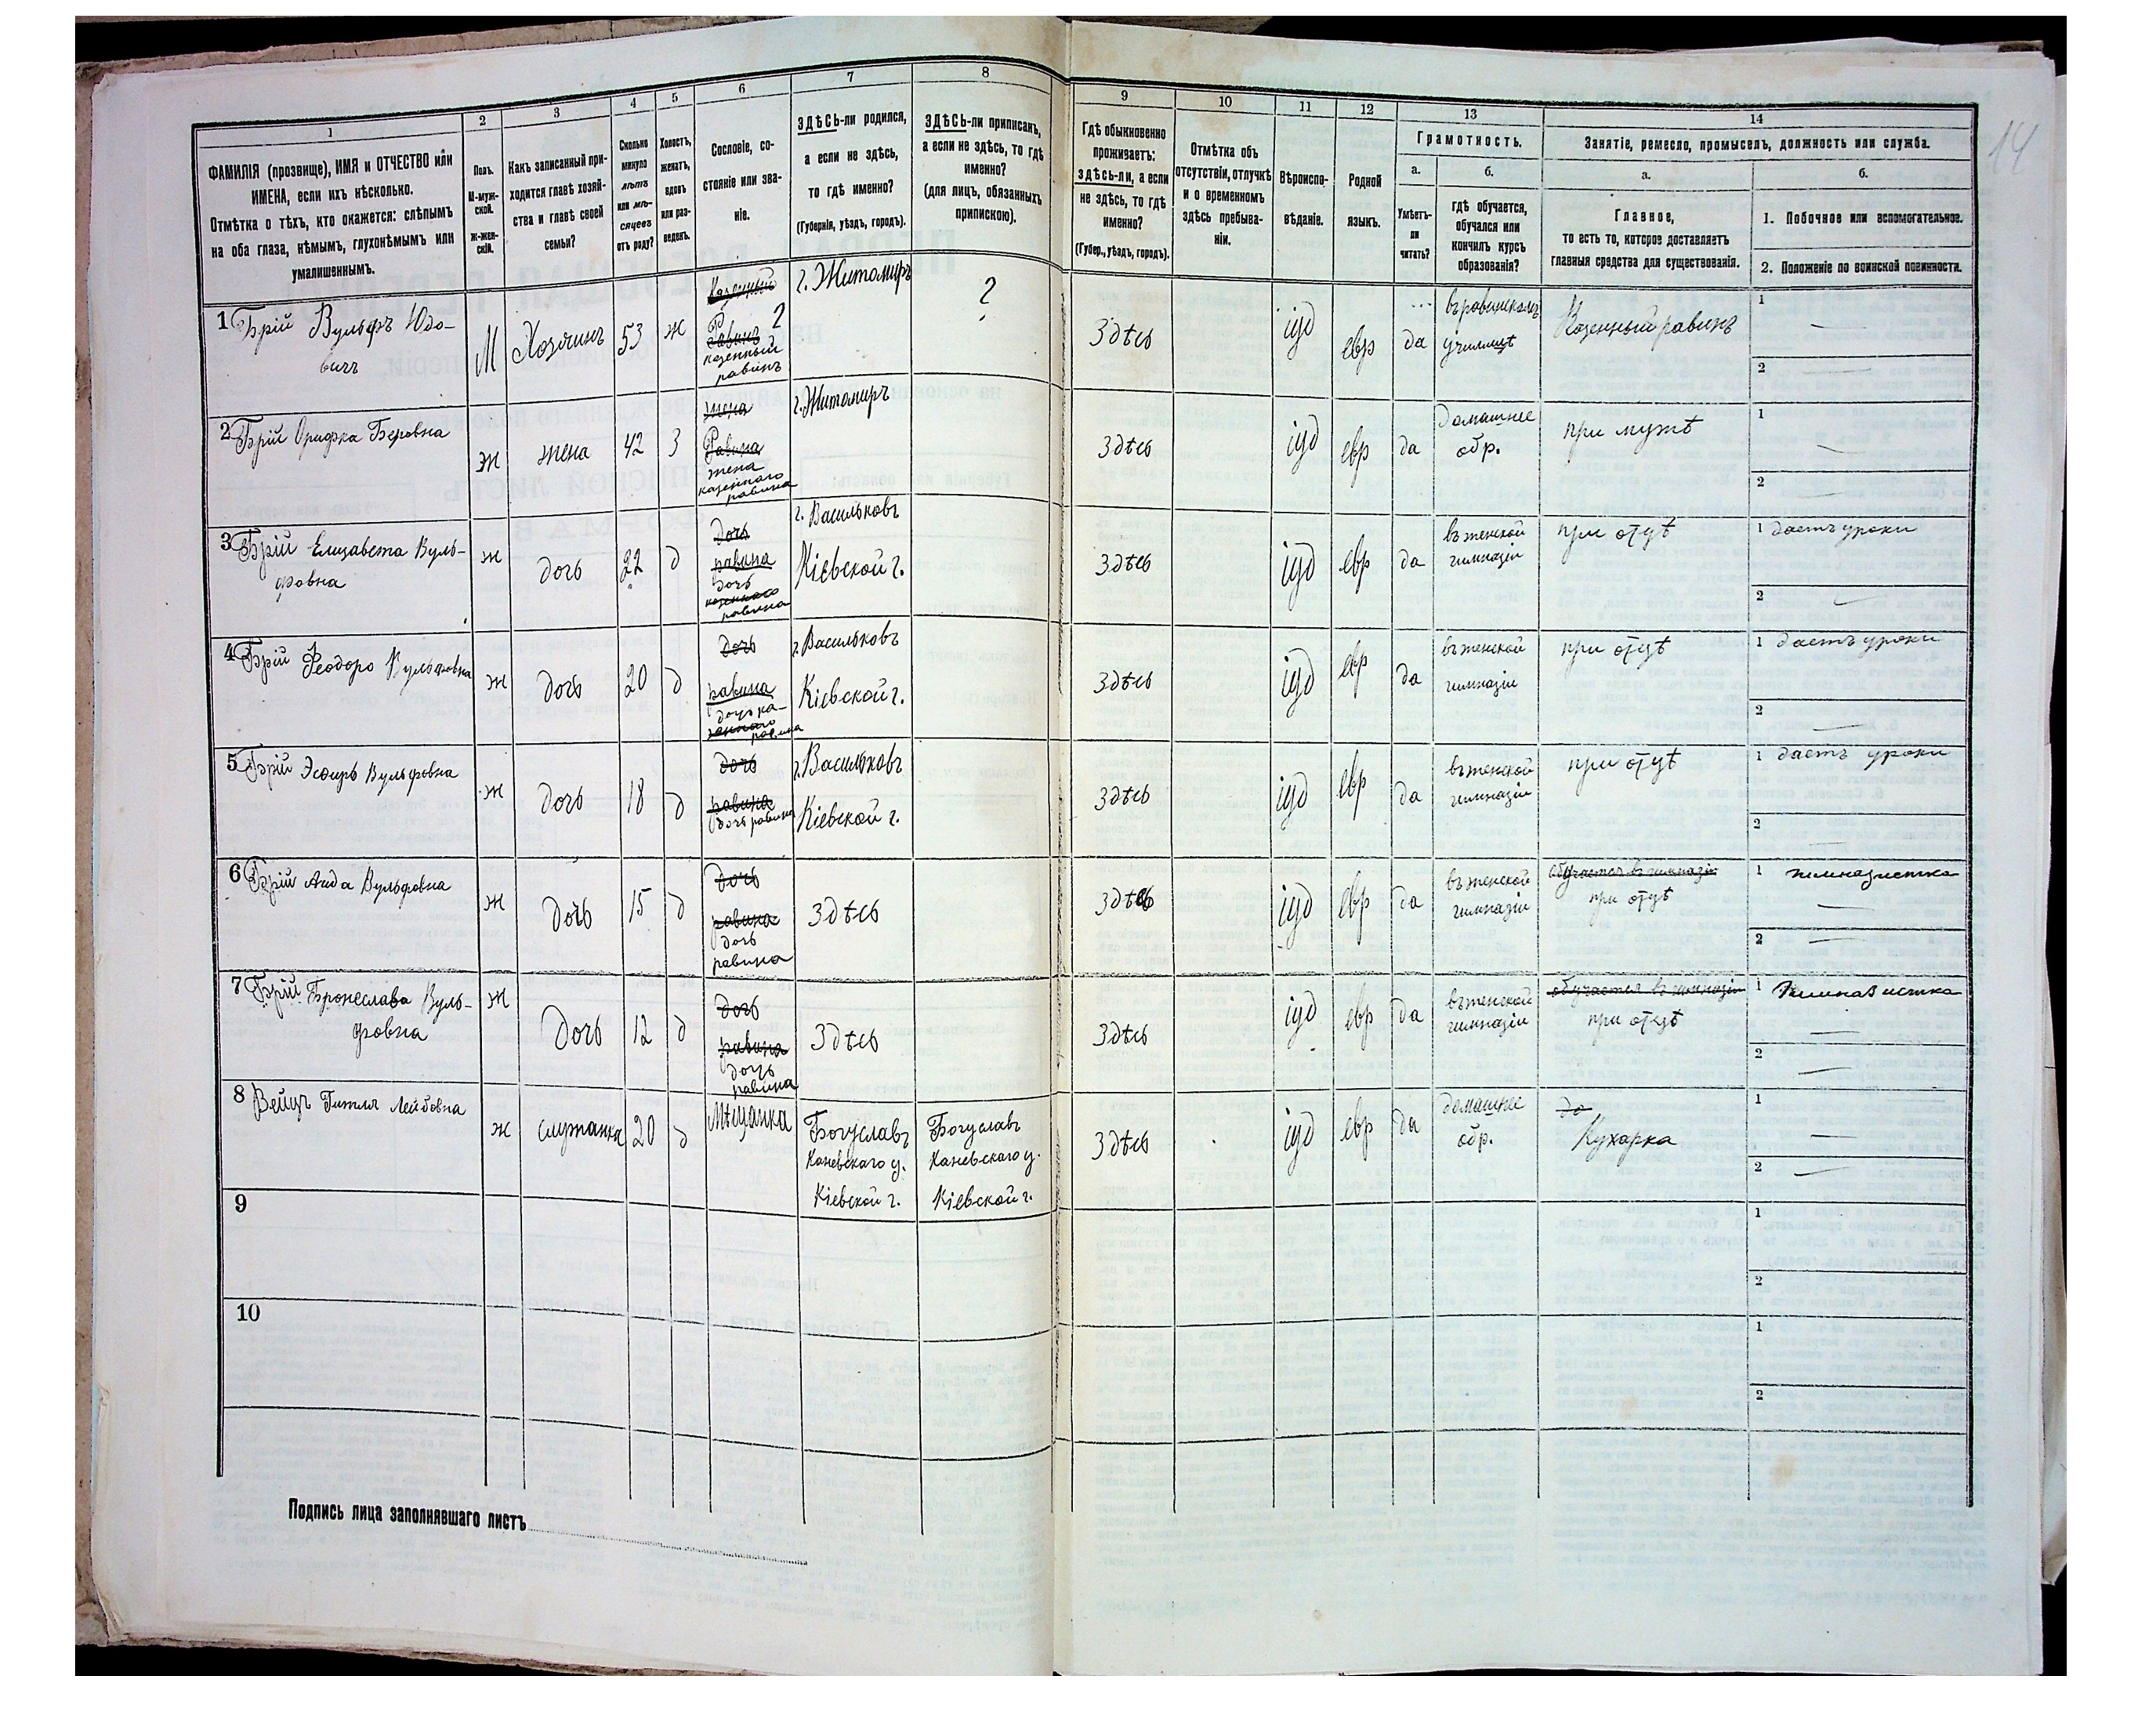 14
1 2 3 4 5 6 7 8 9 10 11 12 13 14
ФАМИЛІЯ (прозвище), ИМЯ и ОТЧЕСТВО или
ИМЕНА, если ихъ нѣсколько.
Отмѣтка о тѣхъ, кто окажется: слѣпымъ
на оба глаза, нѣмымъ, глухонѣмымъ или
умалишеннымъ.
Полъ.
М-муж-
ской.
Ж-жен-
скій.
Какъ записанный при-
ходится главѣ хозяй-
ства и главѣ своей
семьи?
Сколько
минуло
лѣтъ
или мѣ-
сяцевъ
отъ роду?
Холостъ,
женатъ,
вдовъ
или раз-
веденъ.
Сословіе, со-
стояніе или зва-
ніе.
ЗДѢСЬ-ли родился,
а если не здѣсь,
то гдѣ именно?
(Губернія, уѣздъ, городъ).
ЗДѢСЬ-ли приписанъ,
а если не здѣсь, то гдѣ
именно?
(для лицъ, обязанныхъ
припискою).
Гдѣ обыкновенно
проживаетъ:
здѣсь-ли, а если
не здѣсь, то гдѣ
именно?
(Губер., уѣздъ, городъ).
Отмѣтка объ
отсутствіи, отлучкѣ
и о временномъ
здѣсь пребыва-
ніи.
Вѣроиспо-
вѣданіе.
Родной
языкъ.
Грамотность.
а.
Умѣетъ-
ли
читать?
б.
гдѣ обучается,
обучался или
кончилъ курсъ
образованія?
Занятіе, ремесло, промыселъ, должность или служба.
а.
Главное,
то есть то, которое доставляетъ
главныя средства для существованія.
б.
1. Побочное или вспомогательное.
2. Положеніе по воинской повинности.
1 Брій Вульфъ Юдо-
вичъ
М Хозяинъ 53 ж
Казенный
Равинъ ?
казенный
равинъ
г. Житомиръ
?
Здѣсь іуд евр да
въ равинскомъ
училищѣ
Казенный равинъ
1 —
2 —
2 Брій Орифка Беровна
Ж жена 42 З
жена
Равина
жена
казеннаго
равина
г. Житомиръ
Здѣсь іуд евр да
Домашнее
обр.
при мужѣ
1 —
2 —
3 Брій Елизавета Вуль-
фовна
Ж дочь 22 д
дочь
равина
дочь
казеннаго
равина
г. Васильковъ
Кіевской г.
Здѣсь іуд евр да
въ женской
гимназіи
при отцѣ
1 даетъ уроки
2 —
4 Брій Феодоро Вульфовна
Ж дочь 20 д
дочь
равина
дочь ка-
зеннаго
равина
г. Васильковъ
Кіевской г.
Здѣсь іуд евр да
въ женской
гимназіи
при отцѣ
1 даетъ уроки
2 —
5 Брій Эсѳирь Вульфовна
Ж дочь 18 д
дочь
равина
дочь равина
г. Васильковъ
Кіевской г.
Здѣсь іуд евр да
въ женской
гимназіи
при отцѣ
1 даетъ уроки
2 —
6 Брій Аида Вульфовна
Ж дочь 15 д
дочь
равина
дочь
равина
Здѣсь
Здѣсь іуд евр да
въ женской
гимназіи
обучается въ гимназіи
при отцѣ
1 гимназистка
—
2 —
7 Брій Бронеслава Вуль-
фовна
Ж дочь 12 д
дочь
равина
дочь
равина
Здѣсь
Здѣсь іуд евр да
въ женской
гимназіи
обучается въ гимназіи
при отцѣ
1 Гимназистка
—
2 —
8 Вейцъ Гитля Лейбовна
Ж служанка 20 д
Мѣщанка
Богуславъ
Каневскаго у.
Кіевской г.
Богуславъ
Каневскаго у.
Кіевской г.
Здѣсь іуд евр да
домашнее
обр.
до
Кухарка
1 —
2 —
9
1
2
10
1
2
Подпись лица заполнявшаго листъ